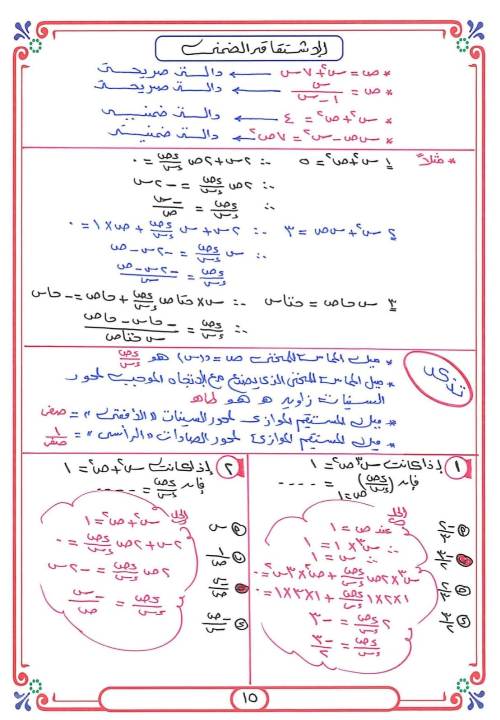 الاشتقاق الضمنى
* ص = س² + ٧س ← دالة صريحة
* ص = س/(١ − س) ← دالة صريحة
* س² + ص² = ٤ ← دالة ضمنية
* س ص − س² = ٧ص² ← دالة ضمنية
* مثلاً ١ س² + ص² = ٥ ∴ ٢س + ٢ص ءص/ءس = ٠
∴ ٢ص ءص/ءس = −٢س
∴ ءص/ءس = −س/ص
٢ س² + س ص = ٣ ∴ ٢س + س ءص/ءس + ص × ١ = ٠
∴ س ءص/ءس = −٢س − ص
ءص/ءس = (−٢س − ص)/س
٣ س حاص = حتاس ∴ س × حتاص ءص/ءس + حاص = −حاس
∴ ءص/ءس = (−حاس − حاص)/(س حتاص)
تذكر
* ميل المماس للمنحنى ص = د(س) هو ءص/ءس
* ميل المماس للمنحنى الذى يصنع مع الاتجاه الموجب لمحور
السينات زاوية هـ هو طاهـ
* ميل المستقيم الموازى لمحور السينات «الأفقى» = صفر
* ميل المستقيم الموازى لمحور الصادات «الرأسى» = ١/صفر
١ إذا كانت س³ ص² = ١
فإن (ءص/ءس) ص=١ = ....
الحل
عند ص = ١
س³ × ١ = ١
∴ س = ١
س³ × ٢ص ءص/ءس + ص² × ٣س² = ٠
١ × ٢ × ١ ءص/ءس + ١ × ٣ × ١ = ٠
٢ ءص/ءس = −٣
ءص/ءس = −٣/٢
٢ إذا كانت س² + ص² = ١
فإن ءص/ءس = ....
الحل
س² + ص² = ١
٢س + ٢ص ءص/ءس = ٠
٢ص ءص/ءس = −٢س
ءص/ءس = −س/ص
١٥